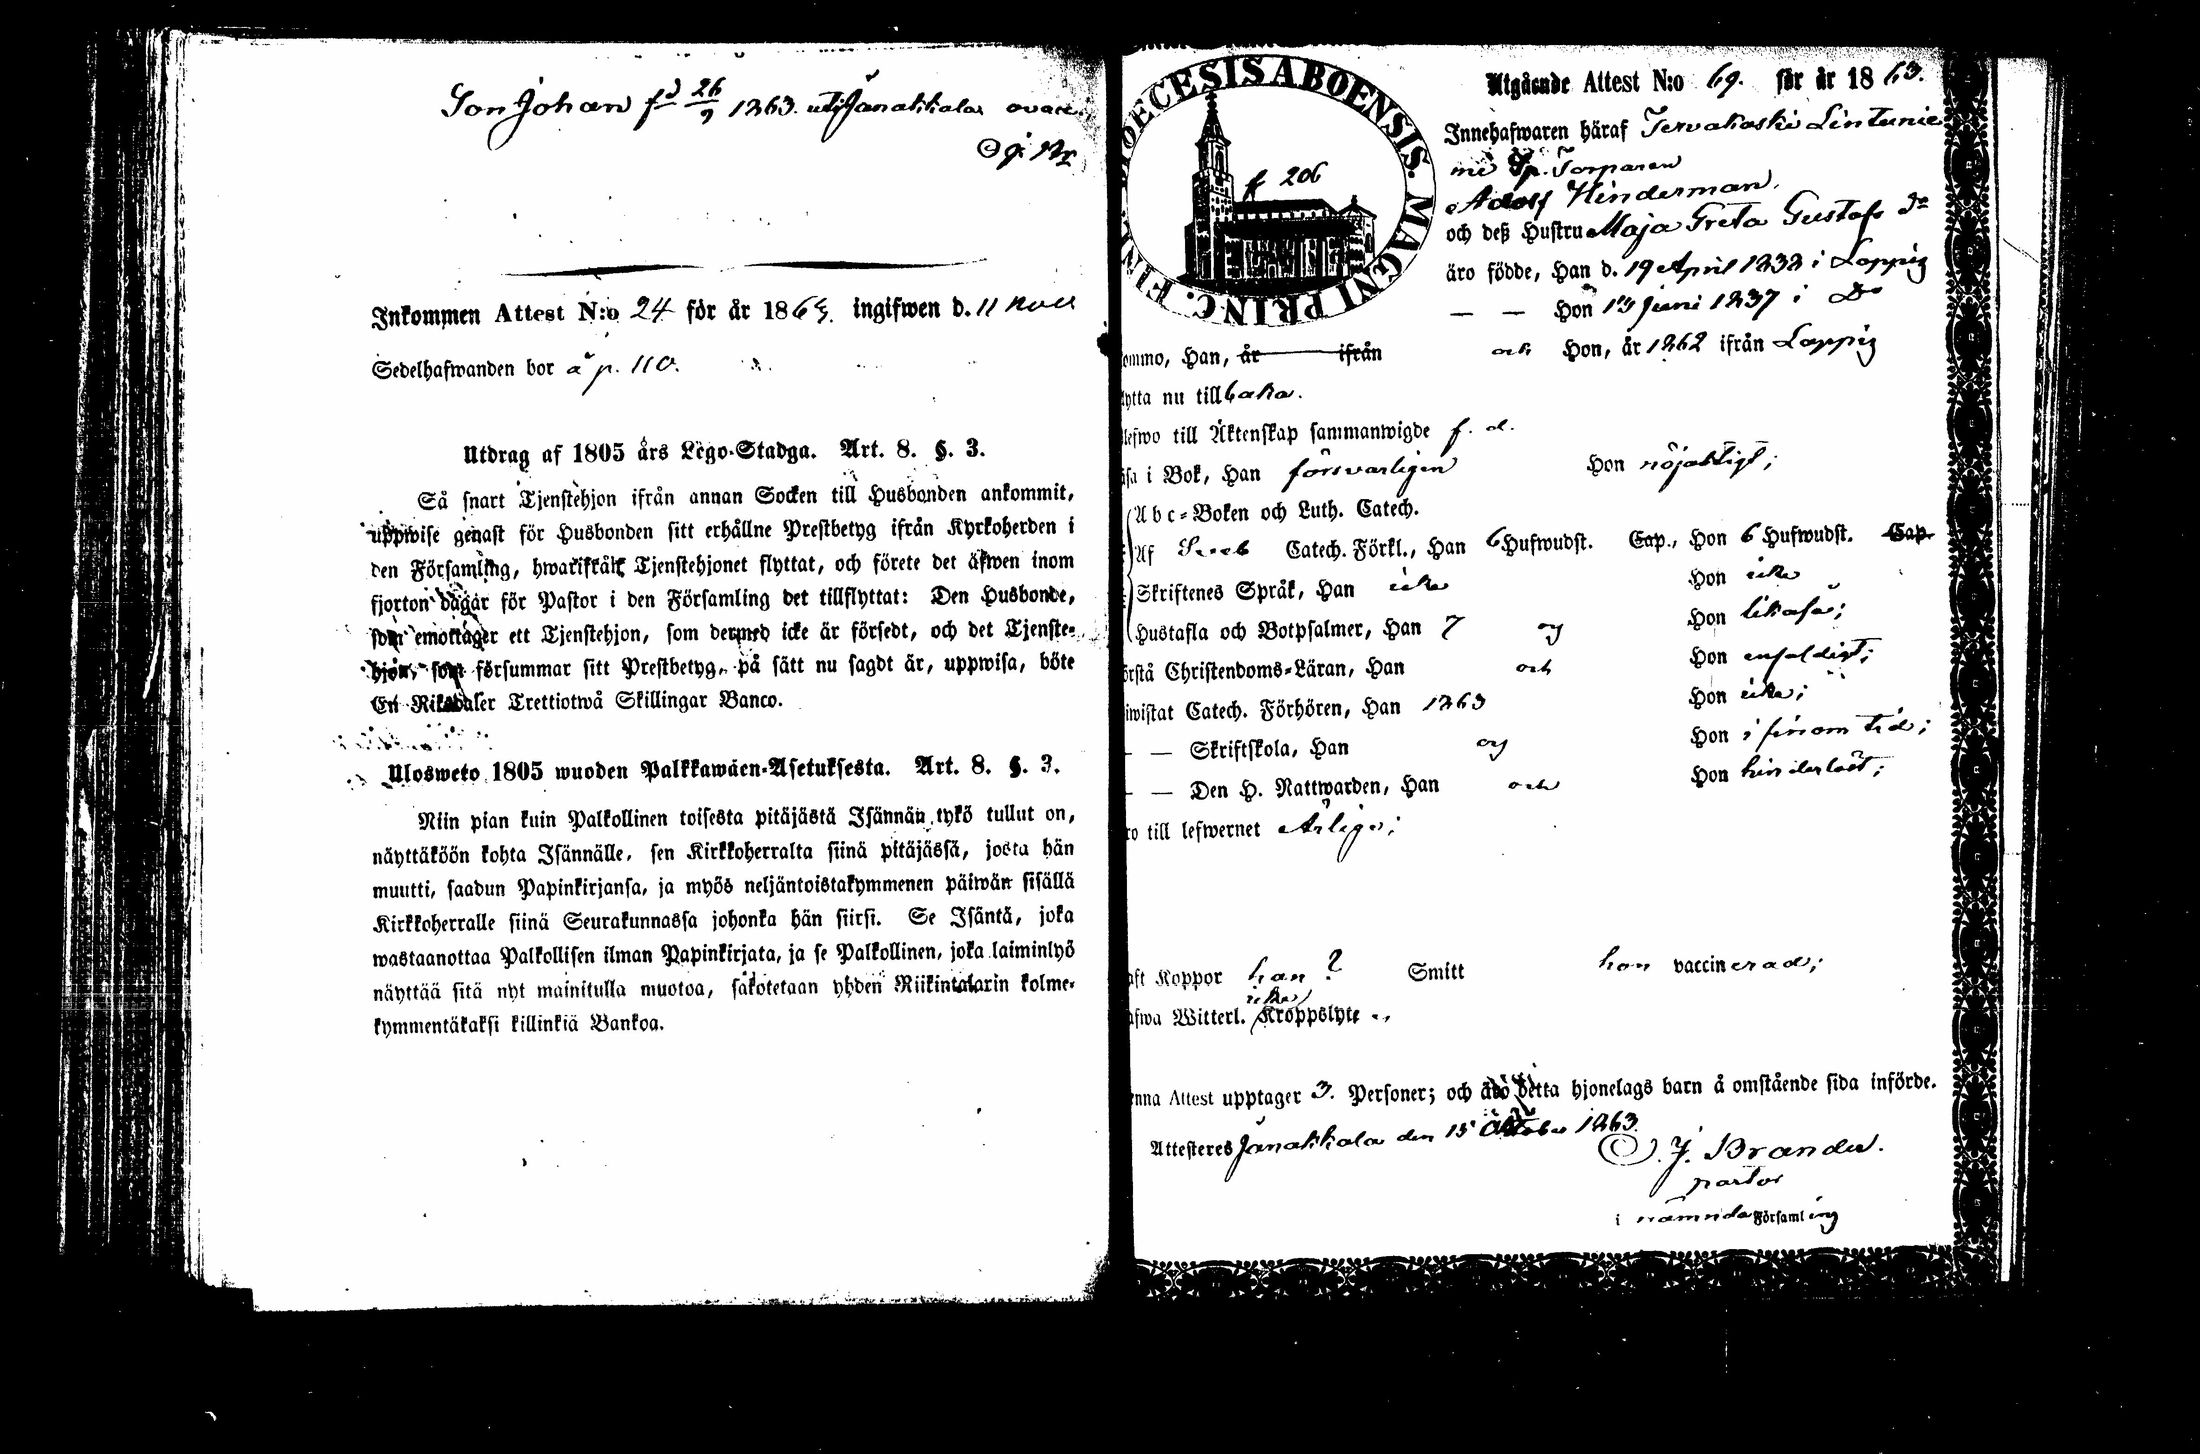 Son Johan fd 26/9 1863. uti Janakkala ovacc.
Inkommen Attest N:o 24 för år 1863. ingifwen d. 11 Nov
Sedelhafwanden bor å p. 110.
Utdrag af 1805 års Lego-Stadga. Art. 8. §. 3.
Så snart Tjenstehjon ifrån annan Socken till Husbonden ankommit,
uppwise genast för Husbonden sitt erhållne Prestbetyg ifrån Kyrkoherden i
den Församling, hwarifrån Tjenstehjonet flyttat, och förete det äfwen inom
fjorton dagar för Pastor i den Församling det tillflyttat: Den Husbonde,
som emottager ett Tjenstehjon, som dermed icke är försedt, och det Tjenste-
hjon, som försummar sitt Prestbetyg, på sätt nu sagdt är, uppwisa, böte
En Riksdaler Trettiotwå Skillingar Banco.
Ulosweto 1805 wuoden Palkkawäen-Asetuksesta. Art. 8. §. 3.
Niin pian kuin Palkollinen toisesta pitäjästä Isännän tykö tullut on,
näyttäköön kohta Isännälle, sen Kirkkoherralta siinä pitäjässä, josta hän
muutti, saadun Papinkirjansa, ja myös neljäntoistakymmenen päiwän sisällä
Kirkkoherralle siinä Seurakunnassa johonka hän siirsi. Se Isäntä, joka
wastaanottaa Palkollisen ilman Papinkirjata, ja se Palkollinen, joka laiminlyö
näyttää sitä nyt mainitulla muotoa, sakotetaan yhden Riikintalarin kolme-
kymmentäkaksi killinkiä Bankoa.
DIOECESIS ABOENSIS. MAGNI PRINC. FINL.
f 206
Utgående Attest N:o 69. för år 1863.
Innehafwaren häraf Tervakoski Lintunie
mi Sp. Torparen
Adolf Hinderman,
och deß Hustru Maja Greta Gustafs dr
äro födde, Han d. 19 April 1832 i Loppis
— — Hon 13 Juni 1837 i Do
ommo, Han, år ifrån och Hon, år 1862 ifrån Loppis
lytta nu tillbaka.
lefwo till Äktenskap sammanwigde f. d.
äsa i Bok, Han försvarligen Hon nöjaktigt;
Abc-Boken och Luth. Catech.
Af Sveb Catech. Förkl., Han 6 Hufwudst. Cap., Hon 6 Hufwudst. Cap.
Skriftenes Språk, Han icke Hon icke
Hustafla och Botpsalmer, Han 7 og Hon likaså;
örstå Christendoms-Läran, Han och Hon enfaldigt;
iwistat Catech. Förhören, Han 1863 Hon icke;
— — Skriftskola, Han og Hon i sinom tid;
— — Den H. Nattwarden, Han och Hon hinderlöst;
ro till lefwernet Ärlige;
aft Koppor han ? Smitt hon vaccinerad;
icke
afwa Witterl. Kroppslyte
enna Attest upptager 3. Personer; och äro detta hjonelags barn å omstående sida införde.
Attesteres Janakkala den 15 Oktober 1863.
J. Brander.
pastor
i nämnda Församling